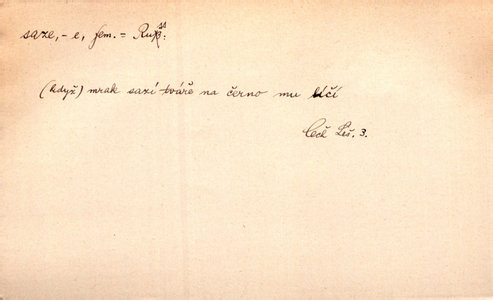 saze, -e, fem. = Russ:
(když) mrak sazí tváře na černo mu líčí
Čech Leš. 3.